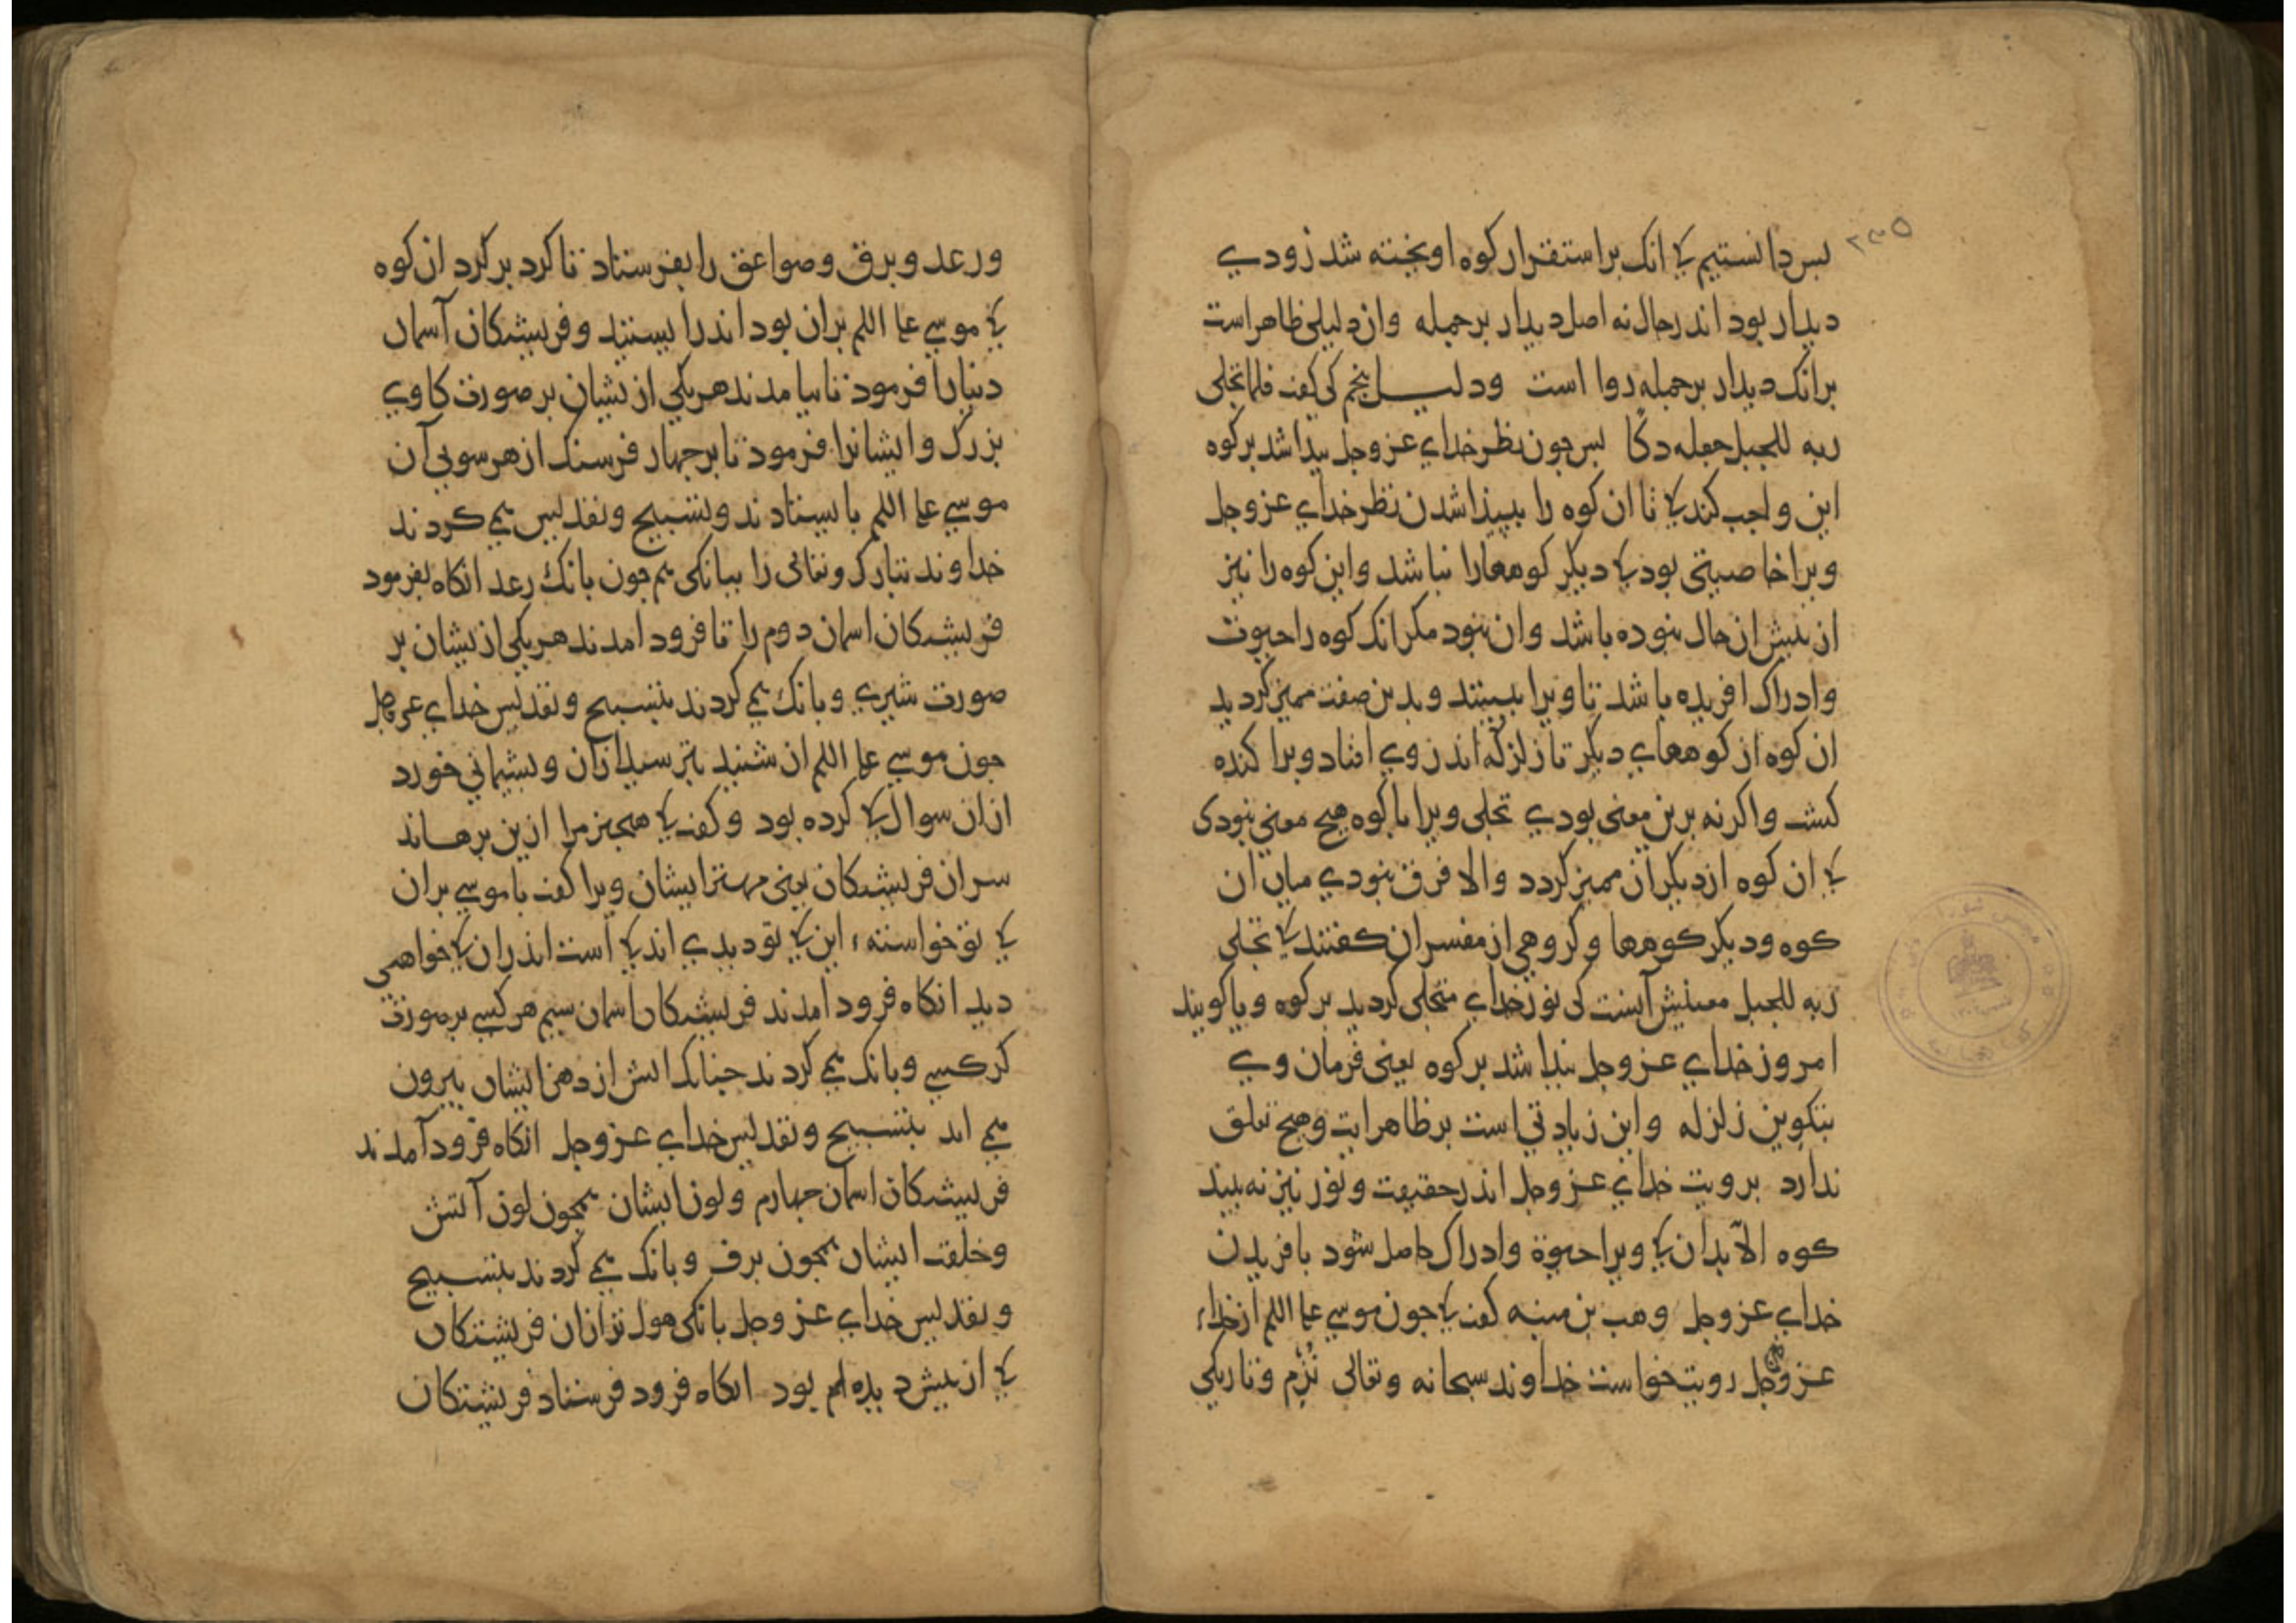 ۲۳۵
بس دانستیم کی انک براستقرار کوه اویخته شد زودی
دیدار بود اندر حال نه اصل دیدار برجمله وان دلیلی ظاهراست
برانک دیدار برجمله روا است ودلیل پنجم کی کفت فلما تجلی
ربه للجبل جعله دکا بس جون نظر خدای عزوجل بیدا شد برکوه
این واجب کند کی تا ان کوه را ببیذا شدن نظر خدای عزوجل
ویرا خاصیتی بود کی دیکر کوهها را نباشد واین کوه را نیز
از بیش ان حال نبوده باشد وان نبود مکر انک کوه را حیوت
وادراک افریده باشد تا ویرا ببینند وبدین صفت ممیز کردید
ان کوه از کوههای دیکر تا زلزله اندر وی افتاد وبرا کنده
کشت واکرنه برین معنی بودی تجلی ویرا با کوه هیج معنی نبودی
کی ان کوه از دیکران ممیز کردد والا فرق نبودی میان ان
کوه ودیکر کوهها وکروهی از مفسران کفتند کی تجلی
ربه للجبل معنیش آنست کی نور خدای متجلی کردید برکوه ویا کویند
امروز خدای عزوجل بیدا شد برکوه یعنی فرمان وی
بتکوین زلزله واین زیادتی است برظاهر ایت وهیج تعلق
ندارد برویت خدای عزوجل اندر حقیقت ونور نیز نه بیند
کوه الا بدان کی ویرا حیوة وادراک حاصل شود بافریدن
خدای عزوجل وهب بن منبه کفت کی جون موسی علیه السلم از خدای
عزوجل رویت خواست خداوند سبحانه وتعالی نزم وتاریکی
ورعد وبرق وصواعق را بفرستاد تا کرد برکرد ان کوه
کی موسی علیه السلم بران بود اندر ایستند وفریشتکان آسمان
دنیا را فرمود تا بیامدند هریکی ازیشان بر صورت کاوی
بزرک وایشانرا فرمود تا برجهار فرسنک از هر سویی آن
موسی علیه السلم بایستادند وتسبیح وتقدیس می کردند
خداوند تبارک وتعالی را ببانکی هم جون بانک رعد انکاه بفرمود
فریشتکان اسمان دوم را تا فرود امدند هریکی ازیشان بر
صورت شیری وبانک می کردند بتسبیح وتقدیس خدای عزوجل
جون موسی علیه السلم ان شنید بترسید ازان وبشیمانی خورد
ازان سوال کی کرده بود وکفت کی هیجیز مرا ازین برهاند
سران فریشتکان یعنی مهتر ایشان ویرا کفت یا موسی بران
کی تو خواسته این کی تو دیدی اندکی است اندران کی خواهی
دید انکاه فرود امدند فریشتکان اسمان سیم هر کسی برصورت
کرکسی وبانک می کردند جنانک اتش از دهن ایشان بیرون
می امد بتسبیح وتقدیس خدای عزوجل انکاه فرود آمدند
فریشتکان اسمان جهارم ولون ایشان همجون لون آتش
وخلقت ایشان همجون برف وبانک می کردند بتسبیح
وتقدیس خدای عزوجل بانکی هول تر ازان فریشتکان
کی از بیش دیده ام بود انکاه فرود فرستاد فریشتکان